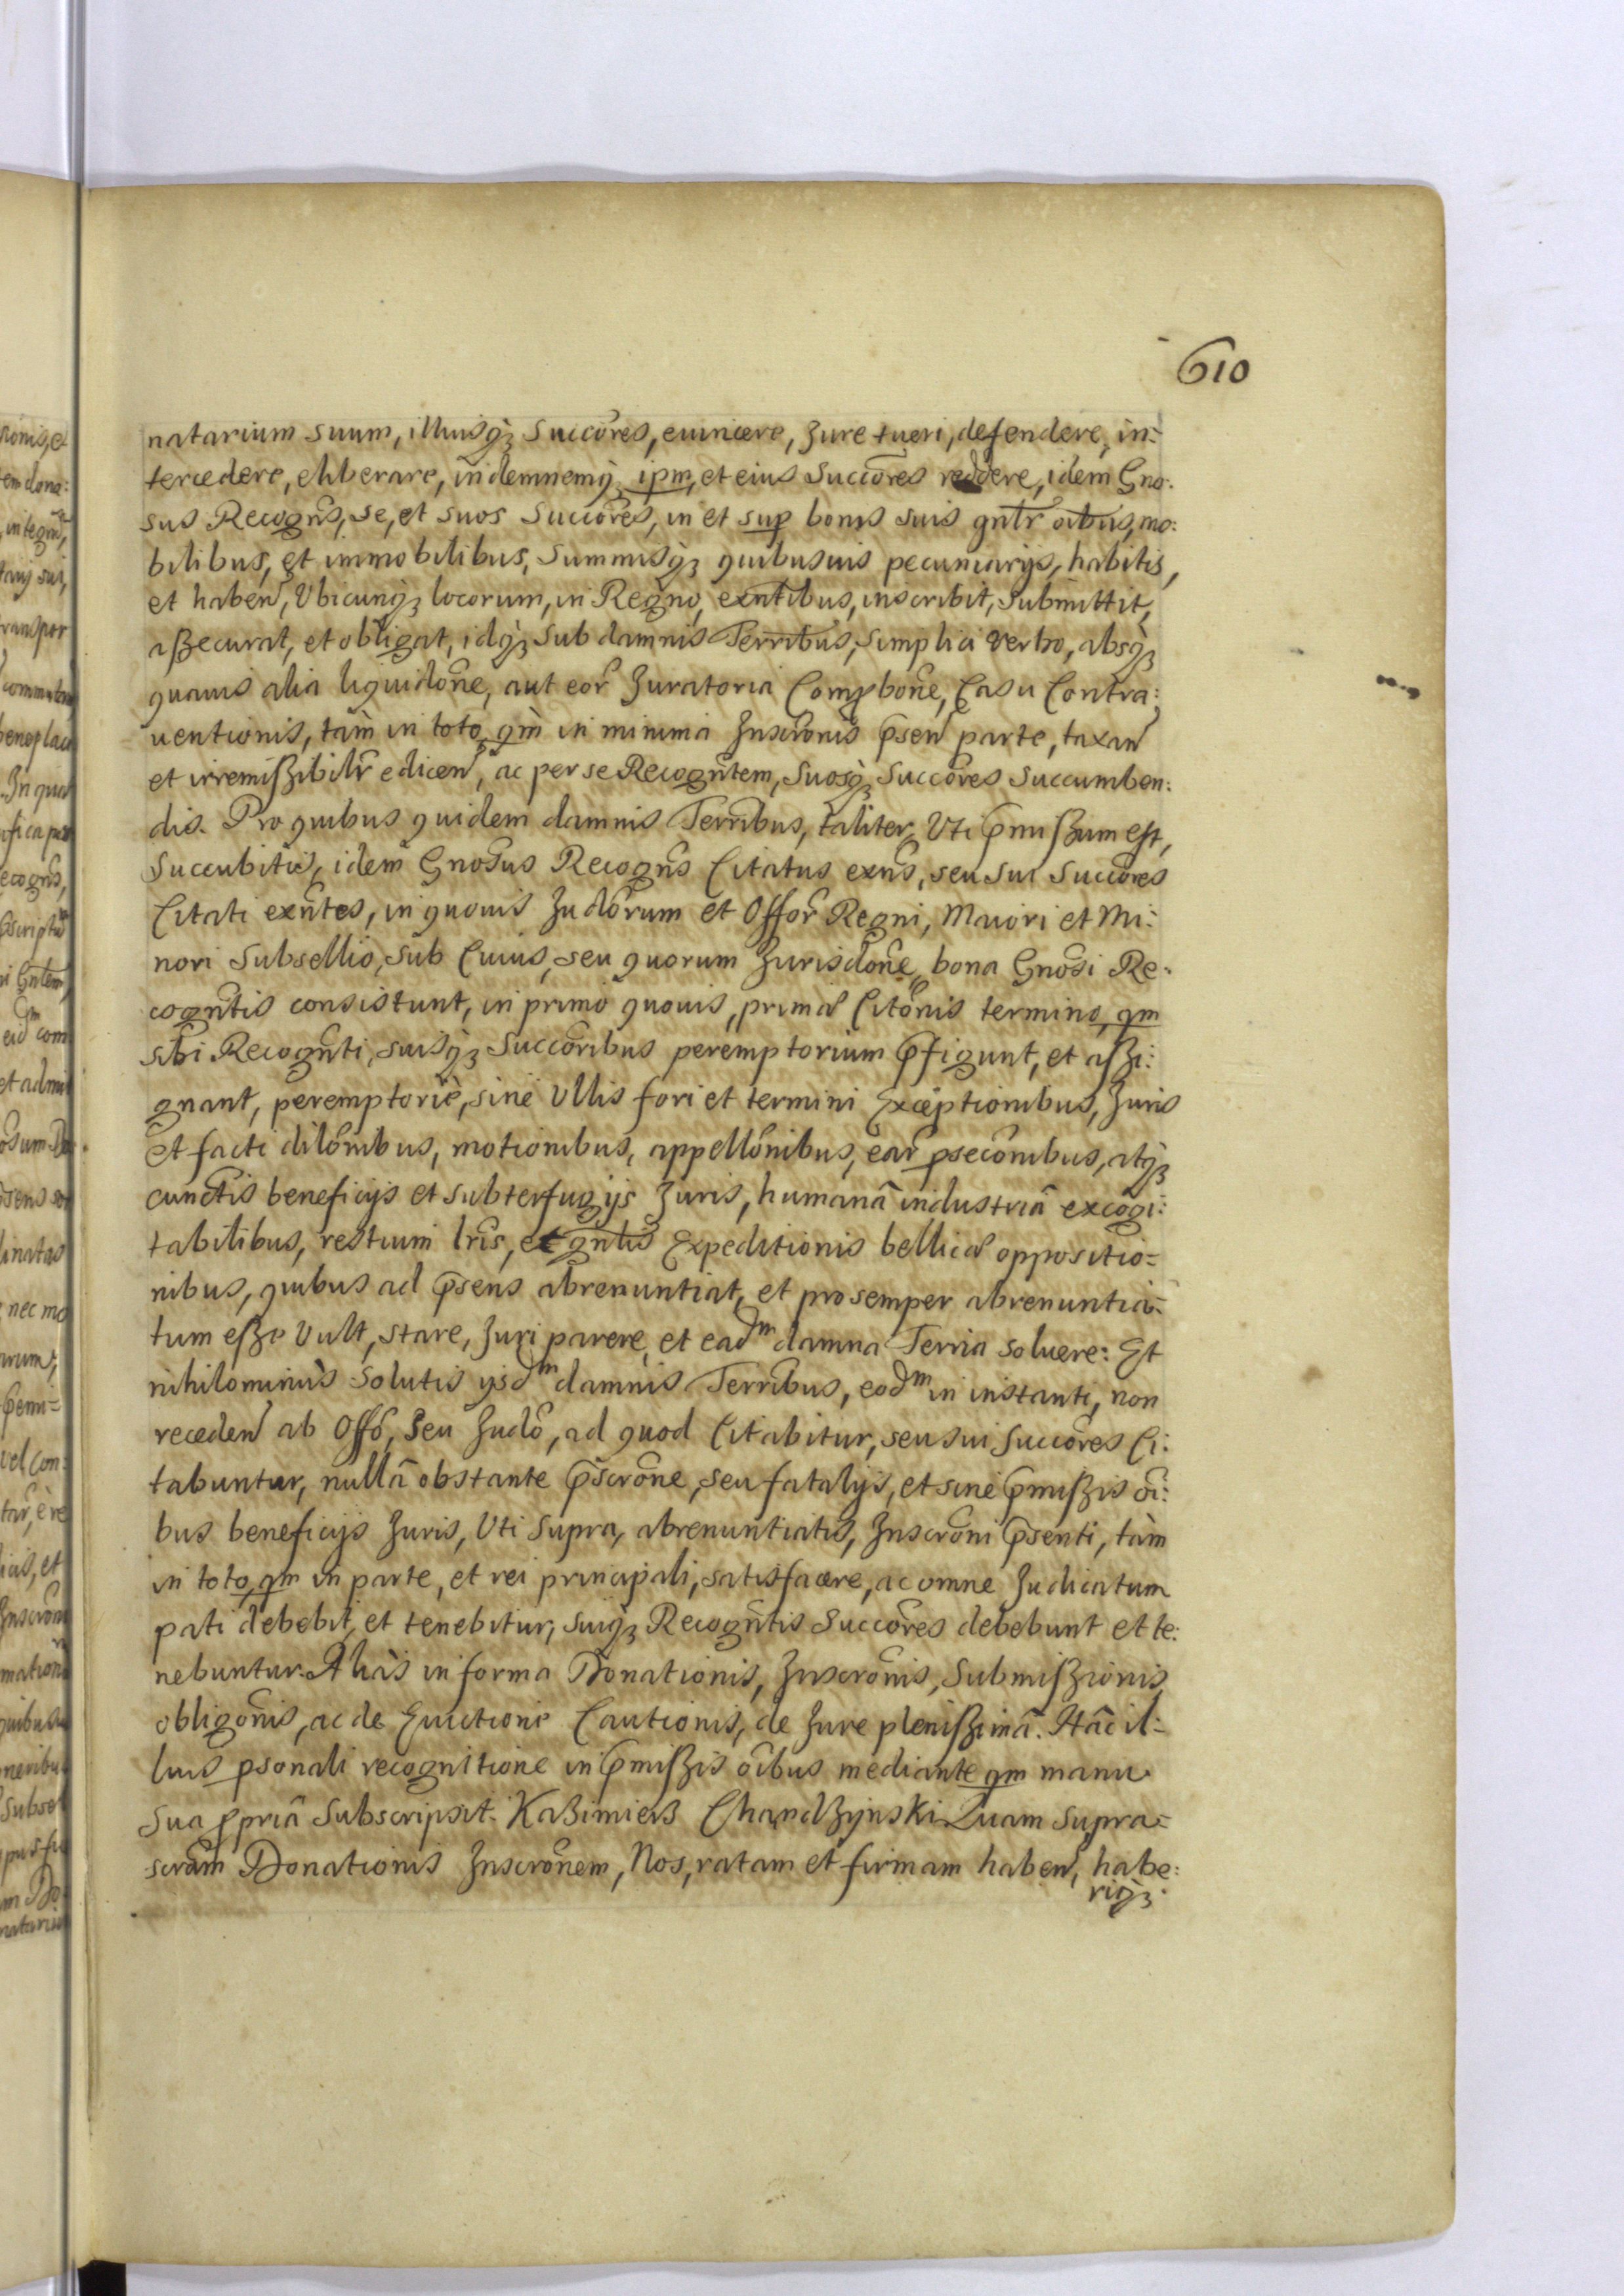 610
natarium suum, illiusq3 Succōres, euincere, Jure tueri, defendere, in-
tercedere, eliberare, indemnemq3 ipm, et eius Succōres reddere, idem Gno:
sus Recogn̄s, se, et suos Succōres, in et sup bonis suis gnlr oībus, mo:
bilibus, et immobilibus, Summisq3 quibusuis pecuniarijs, habitis,
et haben, Vbicunq3 locorum, in Regno, exn̄tibus, inscribit, Submittit,
aßecurat, et obligat, idq3 sub damnis Terribus, simplici verbo, absq3
quauis alia liquidōne, aut eor Juratoria Compbōne, Casu Contra:
uentionis, tàm in toto, qm in minima Inscrōnis p̄sen parte, taxan
et irremißibilr edicen, ac per se Recogn̄tem, Suosq3 Succōres Succumben:
dis. Pro quibus quidem damnis Terribus, taliter, Vti p̄mißum est,
Succubitis, idem Gnōsus Recogn̄s Citatus exn̄s, seu sui Succōres
Citati exn̄tes, in quouis Judōrum et Offōr Regni, Maiori et Mi:
nori Subsellio, sub Cuius, seu quorum Jurisdōne, bona Gnōsi Re:
cogn̄tis consistunt, in primo quouis, primæ Citōnis termino, qm
sibi Recogn̄ti, suisq3 Succōribus peremptorium p̄figunt, et aßi:
gnant, peremptoriè, sine Vllis fori et termini Exceptionibus, Juris
et facti dilōnibus, motionibus, appellōnibus, ear psecōnibus, atq3
cunctis beneficijs et subterfugijs Juris, humanâ industriâ excogi:
tabilibus, restium lr̄is, et gnlis Expeditionis bellicæ oppositio=
nibus, quibus ad p̄sens abrenuntiat, et pro semper abrenuntia-
tum eße Vult, stare, Juri parere, et ead^m damna Terria soluere: Et
nihilominùs Solutis ysd^m damnis Terribus, eod^m in instanti, non
receden ab Offō, Seu Judō, ad quod Citabitur, seu sui Succōres Ci:
tabuntur, nullâ obstante p̄scrōne, seu fatalijs, et sine p̄mißis oī:
bus beneficijs Juris, Vti Supra, abrenuntiatis, Inscrōni p̄senti, tàm
in toto, qm in parte, et rei principali, satisfacere, ac omne Judicatum
pati debebit, et tenebitur, suiq3 Recogn̄tis Succōres debebunt et te:
nebuntur. Aliàs in forma Donationis, Inscrōnis, Submißionis,
obligōnis, ac de Euictione Cautionis, de Jure plenißimâ. Hâc il=
lius psonali recognitione in p̄mißis oībus mediante, qm manu
Sua ppriâ Subscripsit. Kaźimierz Chandzyński Quam Supra=
scrām Donationis Inscrōnem, Nos, ratam et firmam haben, habe:
riq3.